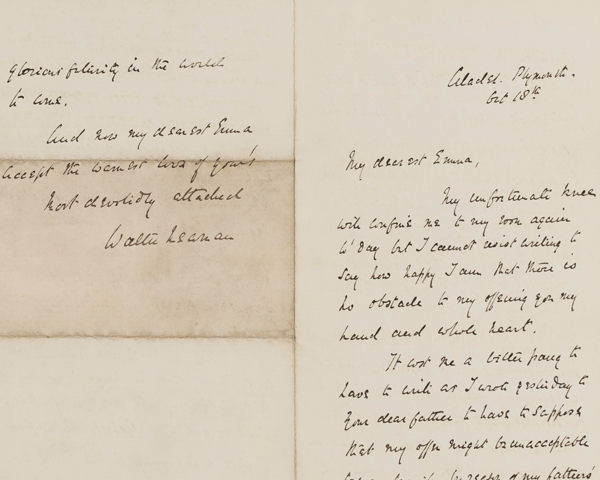 glorious futurity in the world
to come.
And now my dearest Emma
accept the warmest love of your's
most devotedly attached
Walter
Plymouth.
Oct 18th
My dearest Emma,
My unfortunate knee
will confine me to my room again
to Day but I cannot resist writing to
say how happy I am that there is
no obstacle to my offering you my
hand and whole heart.
It cost me a bitter pang to
have to write as I wrote yesterday to
your dear father to have to suppose
that my offer might be unacceptable
of my fathers'